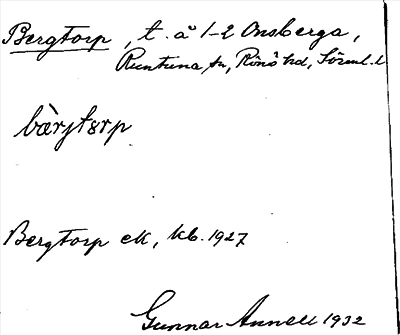 Bergtorp, t. å 1-2 Onsberga,
Runtuna sn, Rönö hd, Sörml. l
bàrjtɵrp
Bergtorp ek, kb. 1927
Gunnar Annell 1932